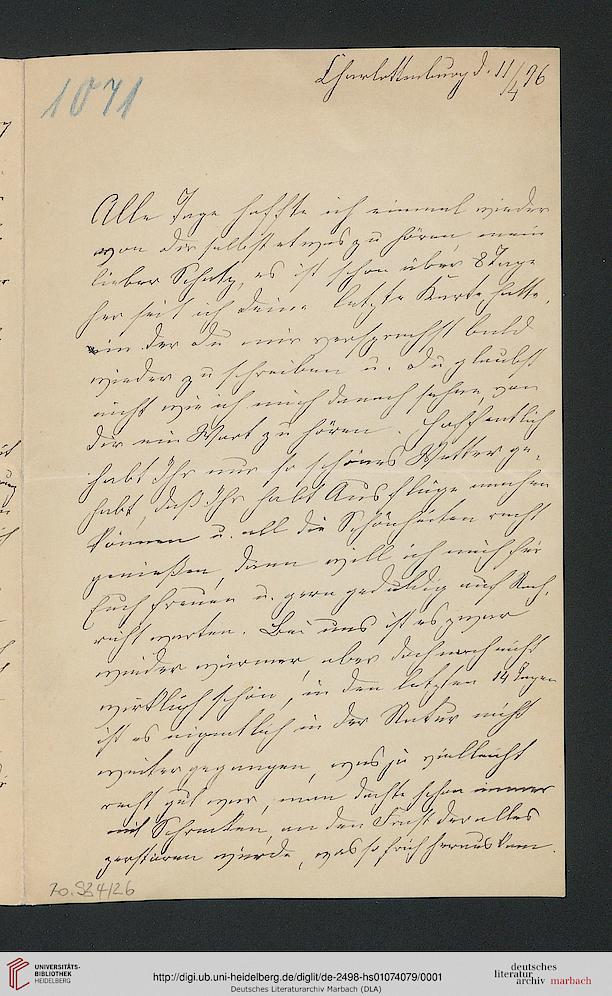 1071
Charlottenburg d. 11/4 96
Alle Tage hoffte ich einmal wieder
von Dir selbst etwas zu hören mein
lieber Schatz, es ist schon über 8 Tage
her seit ich Deine letzte Karte hatte,
in der Du mir versprachst bald
wieder zu schreiben u. Du glaubst
nicht wie ich mich danach sehne, von
Dir ein Wort zu hören. Hoffentlich
habt Ihr nur so schönes Wetter ge-
habt, daß Ihr habt Ausflüge machen
können u. all die Schönheiten recht
genießen, dann will ich mich für
Euch freuen u. gern geduldig auf Nach-
richt warten. Bei uns ist es zwar
wieder wärmer, aber doch noch nicht
wirklich schön, in den letzten 14 Tagen
ist es eigentlich in der Natur nicht
weiter gegangen, was ja vielleicht
recht gut war, man dachte schon immer
mit Schrecken, an den Frost der alles
zerstören würde, was so früh herauskam.
70.934/26
UNIVERSITÄTS-
BIBLIOTHEK
HEIDELBERG
http://digi.ub.uni-heidelberg.de/diglit/de-2498-hs01074079/0001
Deutsches Literaturarchiv Marbach (DLA)
deutsches
literatur
archiv marbach